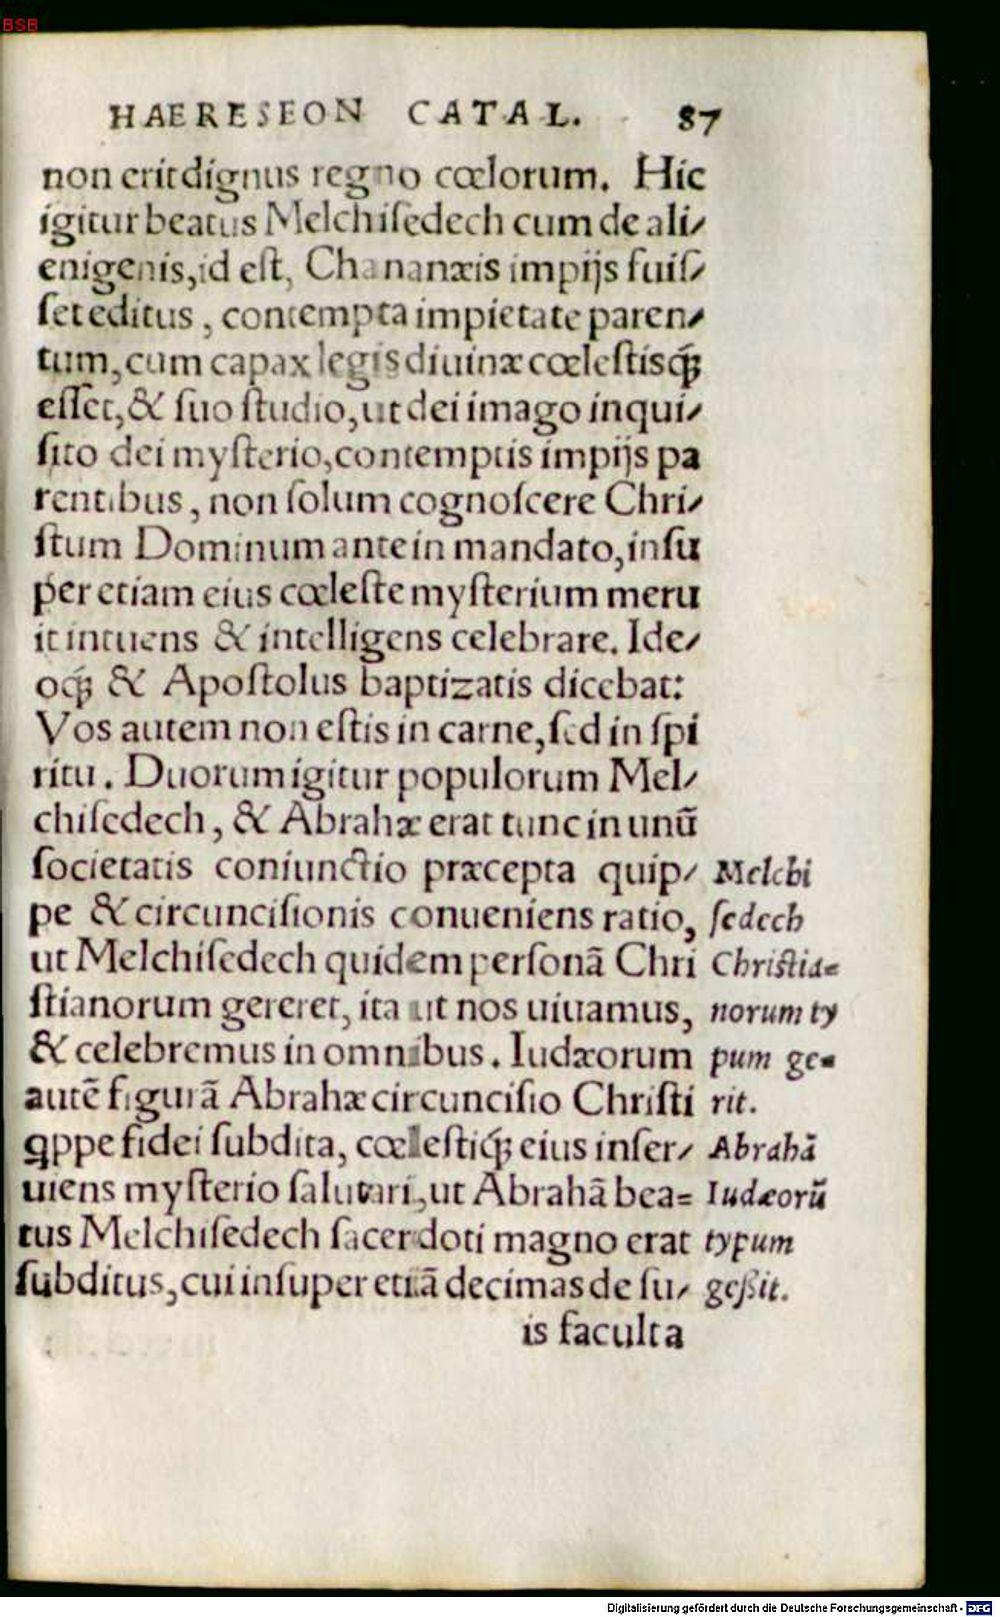 BSB
HAERESEON CATAL. 87
non erit dignus regno cœlorum. Hic
igitur beatus Melchiſedech cum de ali⸗
enigenis, id eſt, Chananæis impijs fuiſ⸗
ſet editus, contempta impietate paren⸗
tum, cum capax legis diuinæ cœleſtisq́;
eſſet, & ſuo ſtudio, ut dei imago inqui⸗
ſito dei myſterio, contemptis impijs pa
rentibus, non ſolum cognoſcere Chri⸗
ſtum Dominum ante in mandato, inſu
per etiam eius cœleſte myſterium meru
it intuens & intelligens celebrare. Ide⸗
oq́; & Apoſtolus baptizatis dicebat:
Vos autem non eſtis in carne, ſed in ſpi
ritu. Duorum igitur populorum Mel⸗
chiſedech, & Abrahæ erat tunc in unũ
ſocietatis coniunctio præcepta quip⸗
pe & circunciſionis conueniens ratio,
ut Melchiſedech quidem perſonã Chri
ſtianorum gereret, ita ut nos uiuamus,
& celebremus in omnibus. Iudæorum
autẽ figurã Abrahæ circunciſio Chriſti
ꝗppe fidei ſubdita, cœleſtiq́; eius inſer⸗
uiens myſterio ſalutari, ut Abrahã bea=
tus Melchiſedech ſacerdoti magno erat
ſubditus, cui inſuper etiã decimas de ſu⸗
is faculta
Melchi
ſedech
Chriſtia=
norum ty
pum ge=
rit.
Abrahã
Iudæorũ
typum
geßit.
Digitalisierung gefördert durch die Deutsche Forschungsgemeinschaft - DFG